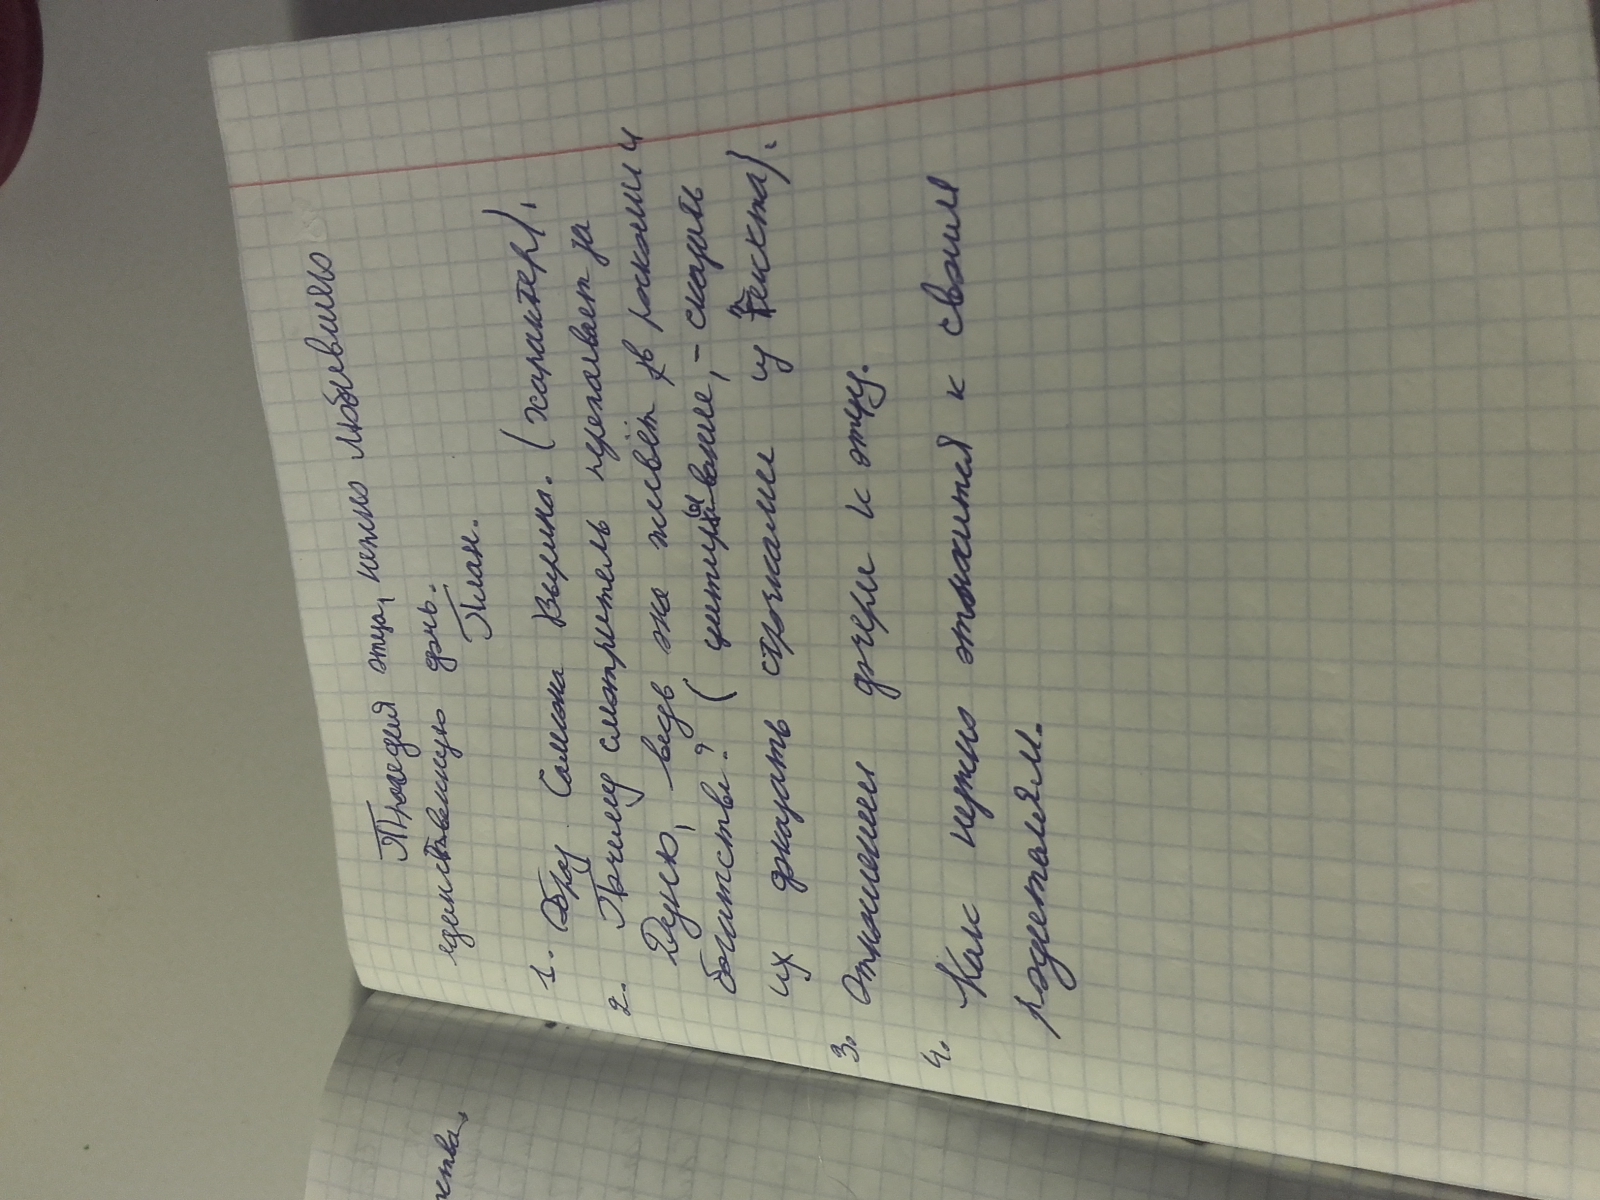 Трагедия отца, нежно любившего
единственную дочь.
План.
1. Образ Самсона Вырина. (характер).
2. Почему смотритель переживает за
Дуню, ведь она живёт в роскоши и
богатстве? ( цитирование, - сказать
их доказать строчками из текста).
3. Отношении дочери к отцу.
4. Как нужно относится к своим
родителям.
ства,